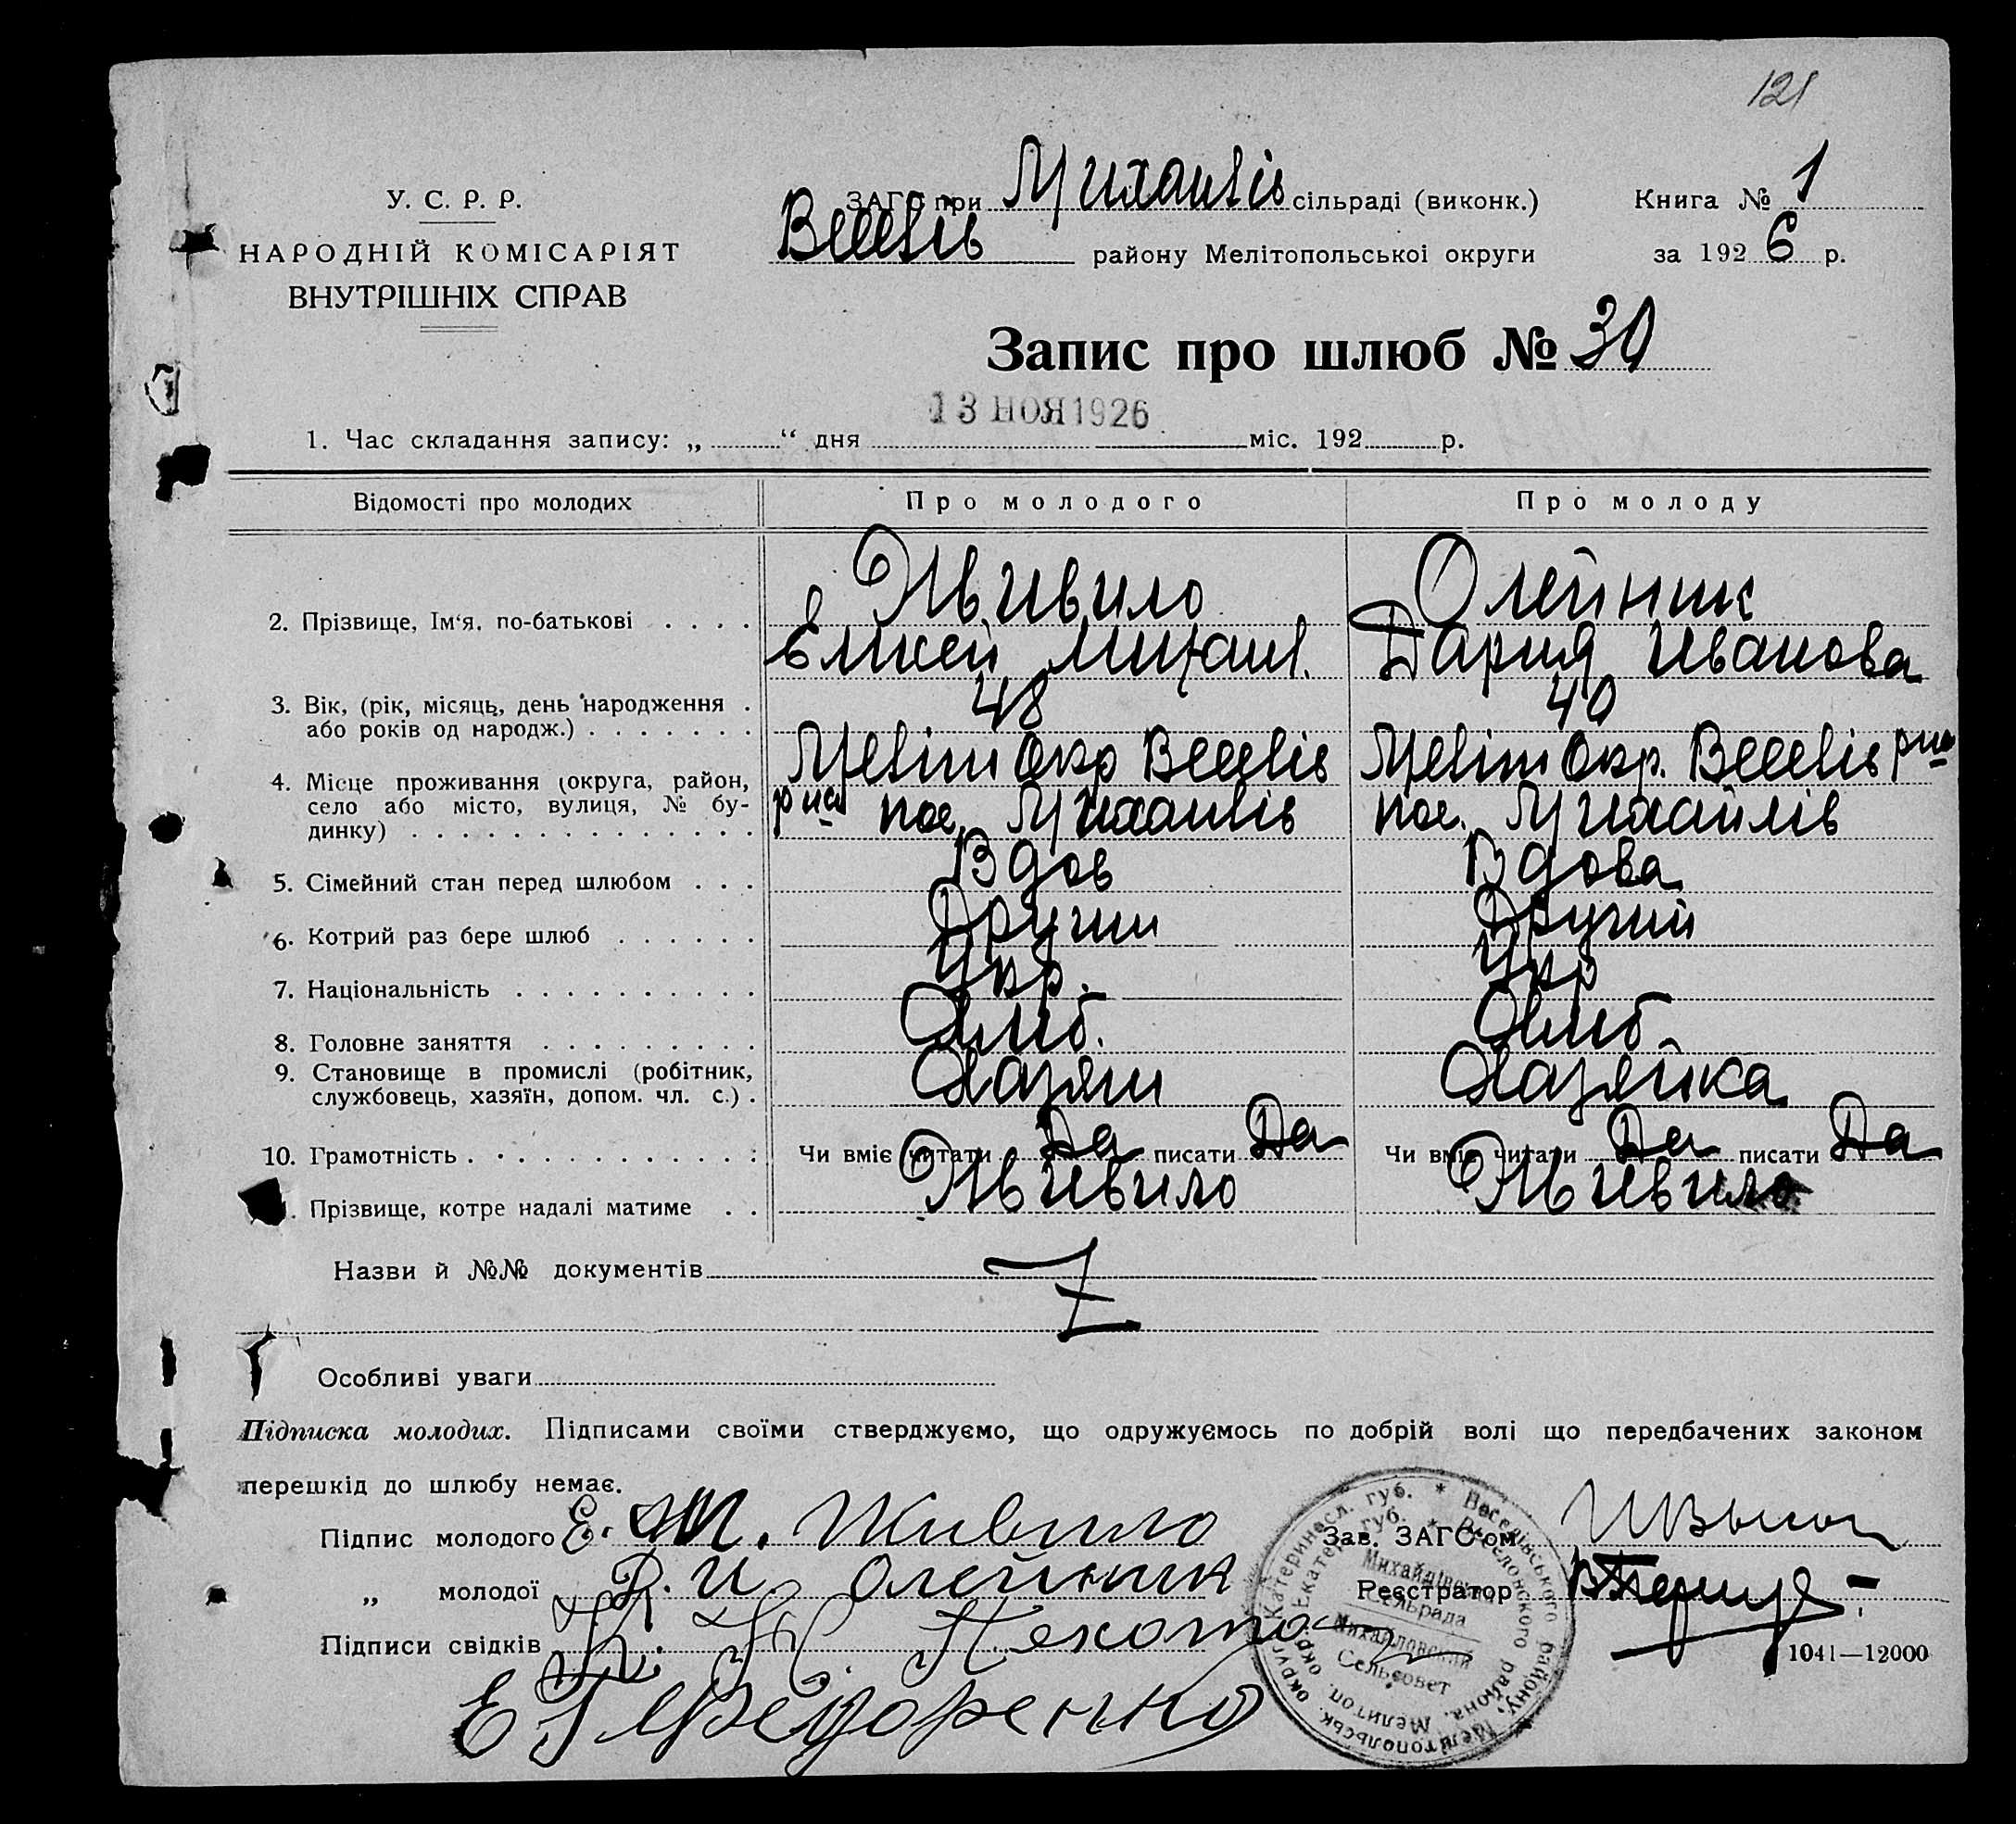 121
У. С. Р. Р.
НАРОДНІЙ КОМІСАРІЯТ
ВНУТРІШНІХ СПРАВ
ЗАГС при Михайлів сільраді (виконк.)
Веселів району Мелітопольської округи
Книга № 1
за 1926 р.
Запис про шлюб № 30
13 НОЯ 1926
1. Час складання запису: „ “ дня міс. 192 р.
Відомості про молодих Про молодого Про молоду
Живило Олейник
2. Прізвище, Ім‘я, по-батькові Елисей Михаил. Дария Иванова
3. Вік, (рік, місяць, день народження 48 40
або років од народж.)
4. Місце проживання (округа, район, Меліт Окр Веселів Меліт Окр. Веселів рна
село або місто, вулиця, № бу- рна пос. Михайлів пос. Михайлів
динку)
5. Сімейний стан перед шлюбом Вдов Вдова
6. Котрий раз бере шлюб Другий Другий
7. Національність Укр. Укр
8. Головне заняття Хліб. Хліб.
9. Становище в промислі (робітник, Хазяин Хазяйка
службовець, хазяїн, допом. чл. с.)
10. Грамотність Чи вміє читати Да писати Да Чи вміє читати Да писати Да
. Прізвище, котре надалі матиме Живило Живило
Назви й №№ документів
Особливі уваги
Підписка молодих. Підписами своїми стверджуємо, що одружуємось по добрій волі що передбачених законом
перешкід до шлюбу немає.
Підпис молодого Е. М. Живило Зав. ЗАГС‘ом
„ молодої Д. И Олейник Реєстратор
Підписи свідків
Е Г Федоренко
1041—12000
Катериносл. губ. * Веселівського району, Мелітопольськ. округ.
Екатер. губ. * Веселовского района, Мелитоп. окр.
Михайлівська
Сельрада
Михайловский
Сельсовет